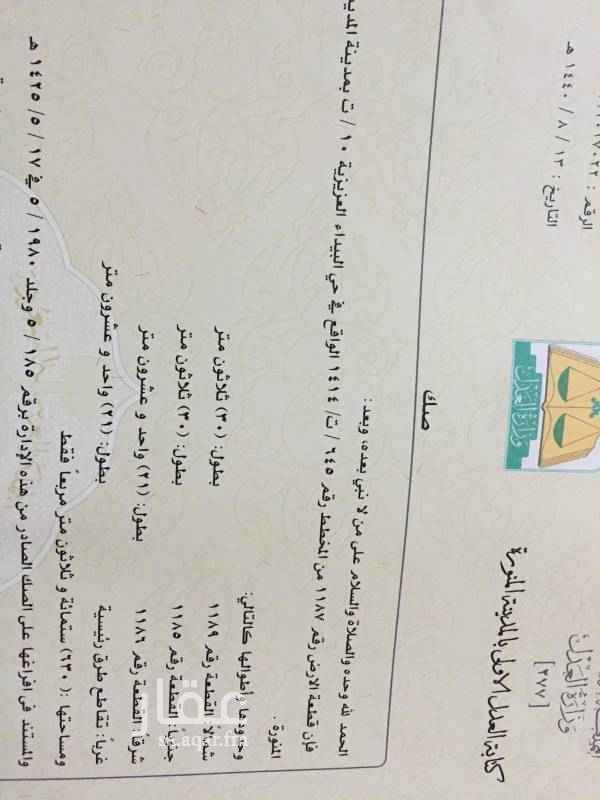 وزارة العدل
[٢٧٧]
كتابة العدل الأولى بالمدينة المنورة
وزارة العدل
الرقم :
التاريخ : ١٣ / ٨ / ١٤٤٠ هـ
صك
الحمد لله وحده والصلاة والسلام على من لا نبي بعده، وبعد :
فإن قطعة الارض رقم ١١٨٧ من المخطط رقم ٦٤٥ / ت / ١٤١٤ الواقع في حي البيداء العزيزية ١٠ / ت بمدينة
المنورة .
وحدودها وأطوالها كالتالي:
شمالاً: القطعة رقم ١١٨٩ بطول: (٣٠) ثلاثون متر
جنوباً: القطعة رقم ١١٨٥ بطول: (٣٠) ثلاثون متر
شرقاً: القطعة رقم ١١٨٦ بطول: (٢١) واحد و عشرون متر
غرباً: تقاطع طرق رئيسية بطول: (٢١) واحد و عشرون متر
ومساحتها : (٦٣٠) ستمائة و ثلاثون متر مربعاً فقط
والمستند في افراغها على الصك الصادر من هذه الإدارة برقم ١٨٥ / ٥ وجلد ١٩٨٠ / ٥ في ١٧ / ٥ / ١٤٢٥ هـ
عقار
sa.aqar.fm